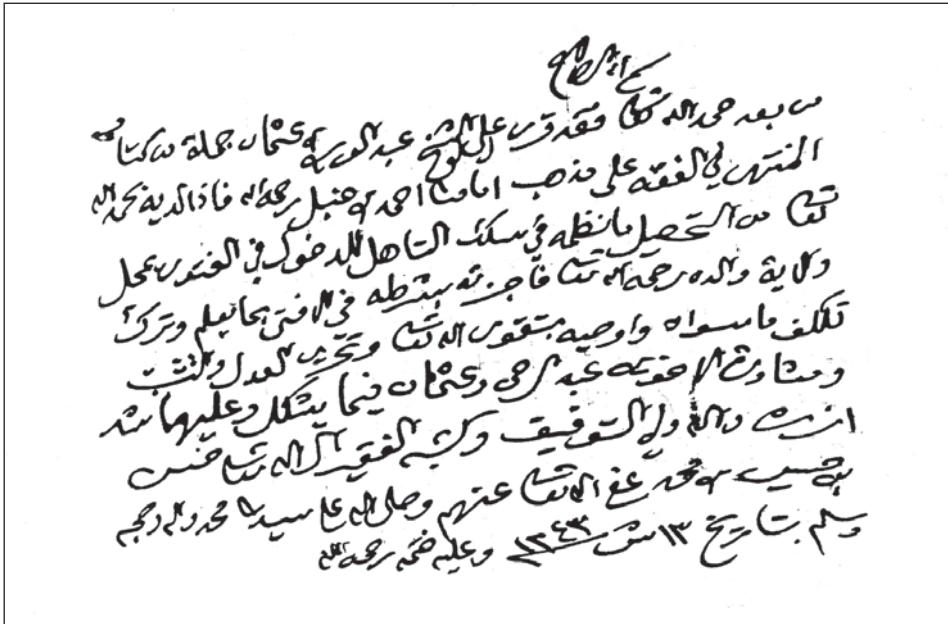 من بعد حمد الله تعالى فقد قرى علي الشيخ عبد العزيز بن عثمان جملة من كتاب
المنتهى في الفقه على مذهب امامنا احمد بن حنبل رحمه الله فاذا لديه بحمد الله
تعالى من التحصيل ما نظمه في سلك التاهل للدخول في الفتوى بمحل
ولاية والده رحمه الله تعالى فاجزته بشرطه في الافتى بما يعلم وترك
تكلف ما سواه واوصيه بتقوى الله تعالى وتحري العدل والتثبت
ومشاورة اخوته عبد الرحمن وعثمان فيما يشكل وعليهما
والله ولي التوفيق وكتبه الفقير الى الله تعالى
بن حسين بن محمد عفى الله تعالى عنهم وصلى الله على سيدنا محمد واله وصحبه
وسلم بتاريخ ١٣ ش ١٢٤٣ وعليه ختمه رحمه الله